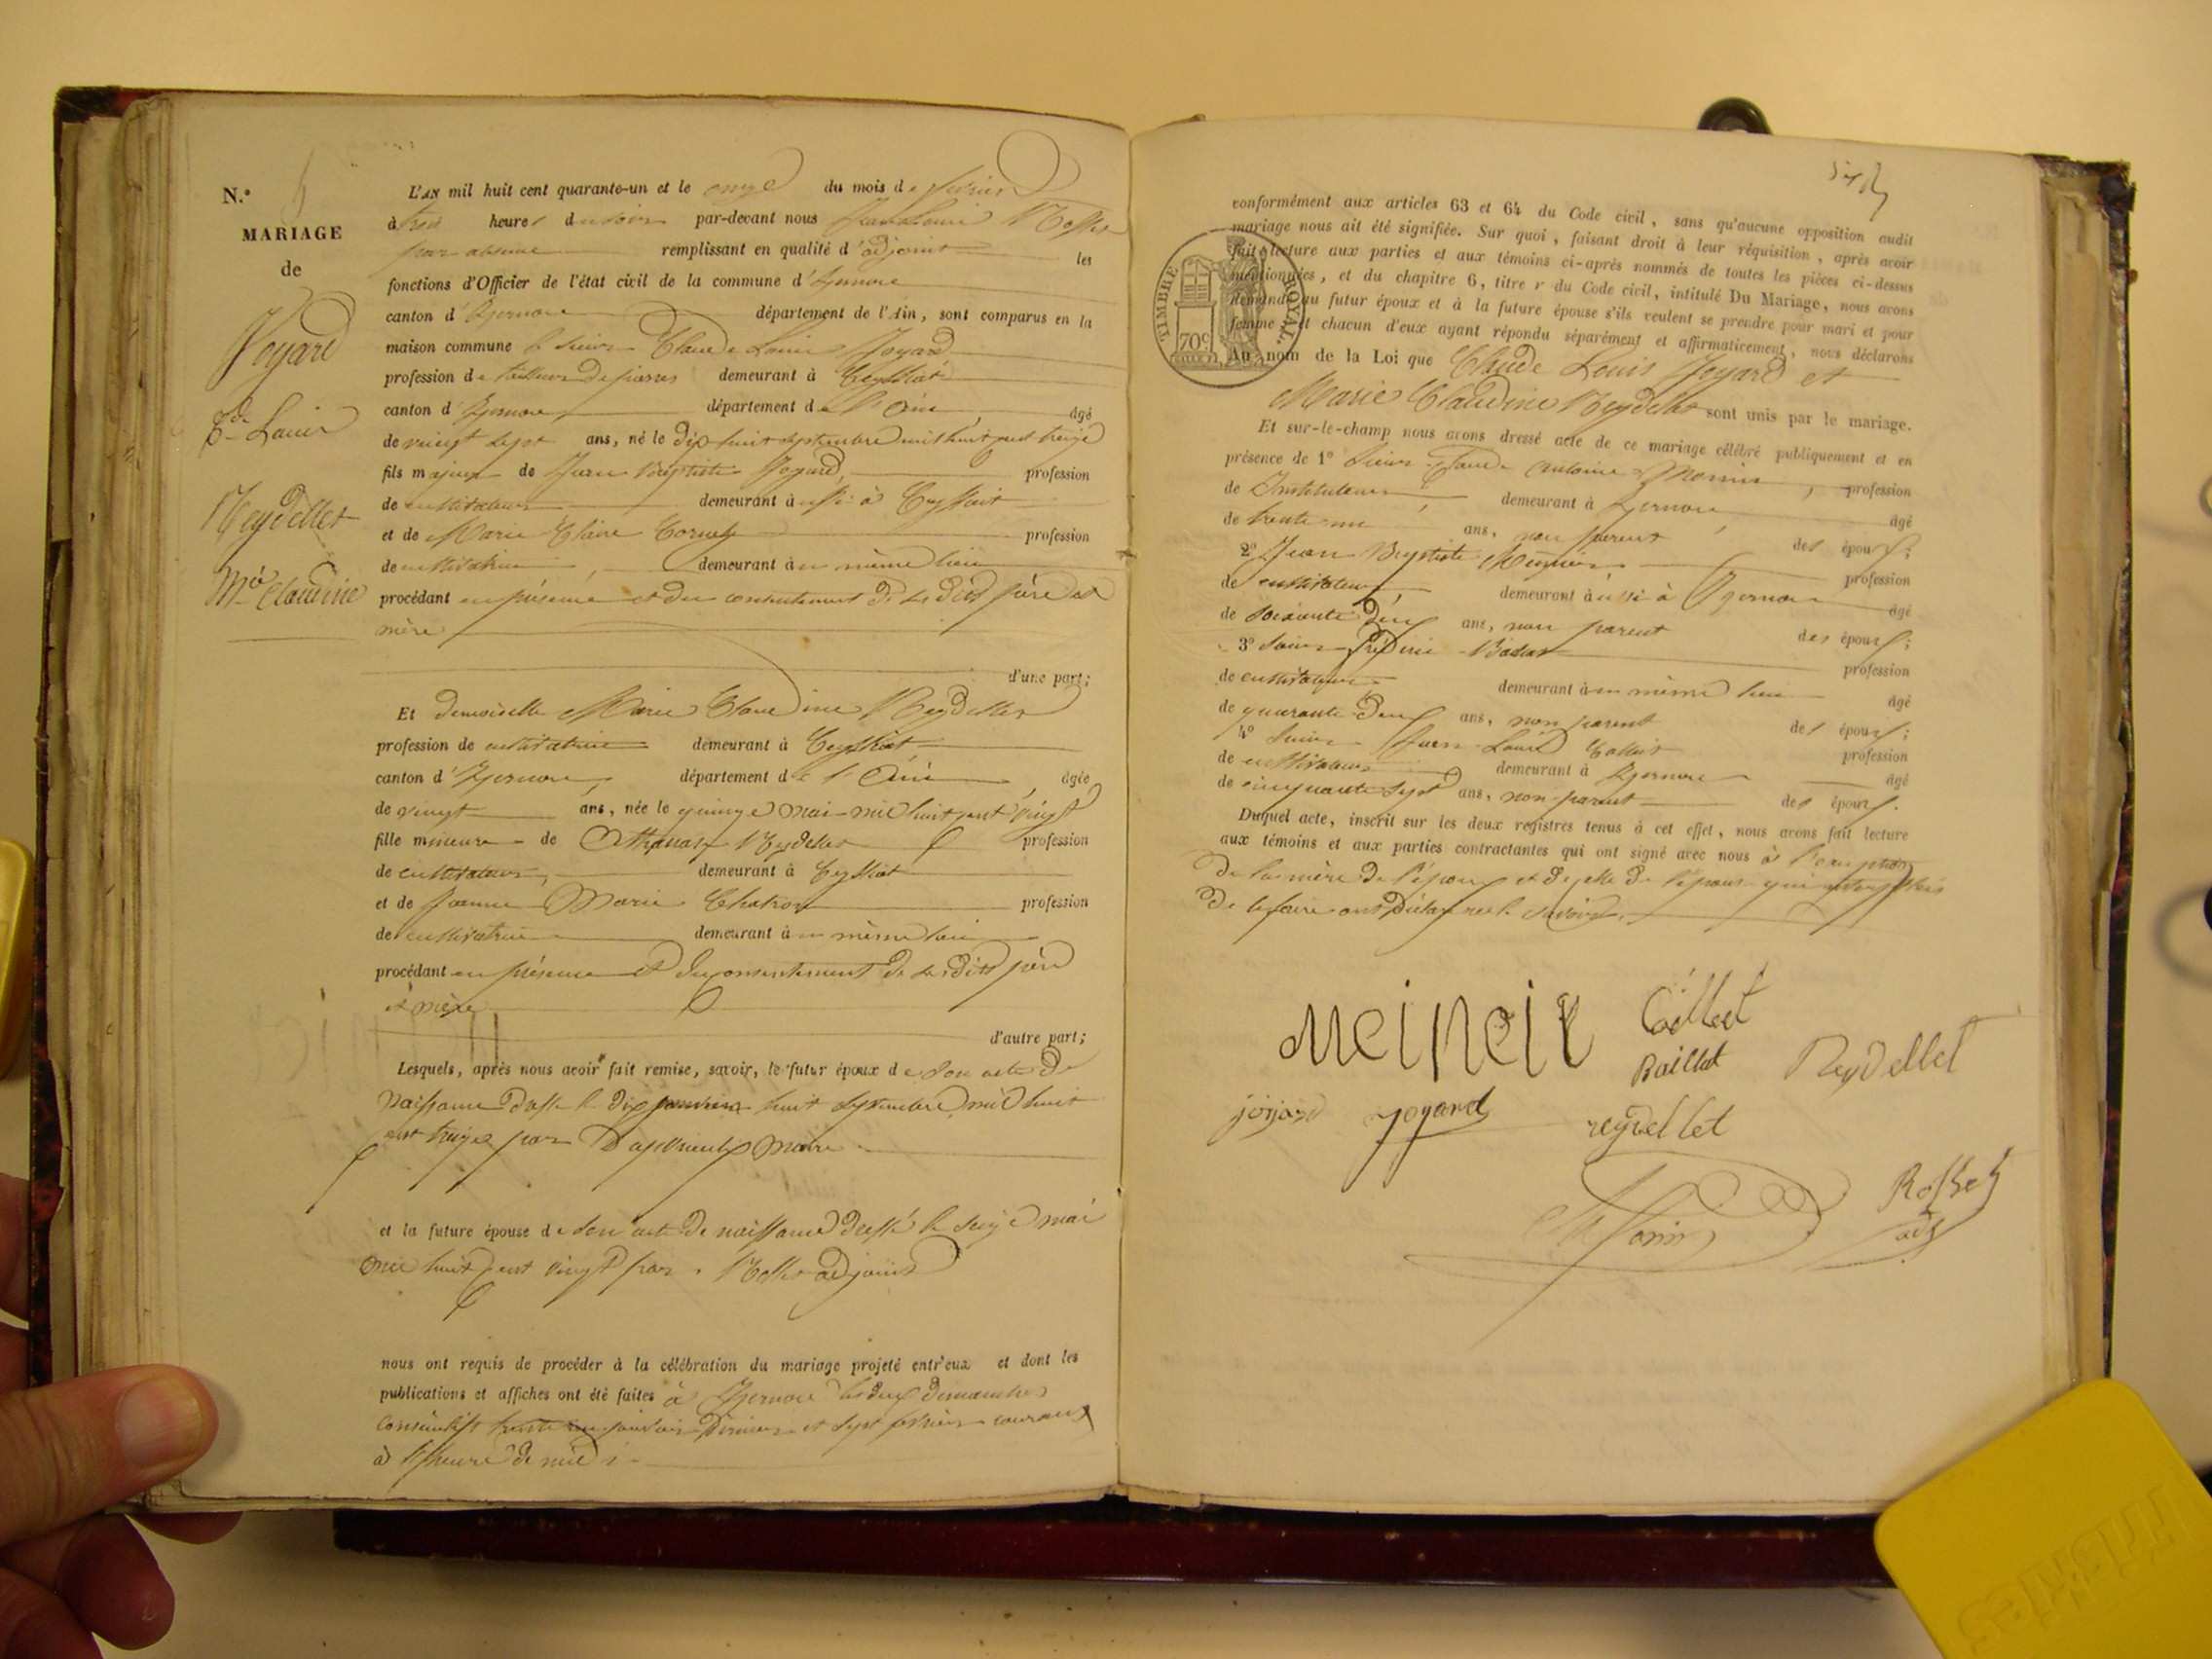 N.° 5
MARIAGE
de
Joyard
C.de Louis
Reydellet
M.ie Claudine
L'AN mil huit cent quarante-un et le onze du mois de février
à trois heures du soir par-devant nous Jean Louis Rosset
par absence remplissant en qualité d'adjoint les
fonctions d'Officier de l'état civil de la commune d'Izernore
canton d'Izernore département de l'Ain, sont comparus en la
maison commune le sieur Claude Louis Joyard
profession de tailleur de pierres demeurant à Ceyssiat
canton d'Izernore, département de l'Ain, âgé
de vingt sept ans, né le dix huit septembre mil huit cent treize
fils majeur de Jean Baptiste Joyard, profession
de cultivateur demeurant aussi à Ceyssiat
et de Marie Claire profession
de cultivatrice, demeurant au même lieu
procédant en présence et du consentement de ses dits père et
mère
d'une part;
Et demoiselle Marie Claudine Reydellet
profession de cultivatrice demeurant à Ceyssiat
canton d'Izernore, département de l'Ain, âgée
de vingt ans, née le quinze mai mil huit cent vingt
fille mineure de Athanase Reydellet profession
de cultivateur, demeurant à Ceyssiat
et de Jeanne Marie profession
de cultivatrice demeurant au même lieu
procédant en présence et du consentement de ses dits père
et mère
d'autre part;
Lesquels, après nous avoir fait remise, savoir, le futur époux de son acte de
naissance dressé le dix huit septembre mil huit
cent treize par maire
et la future épouse de son acte de naissance dressé le seize mai
mil huit cent vingt par Rosset adjoint
nous ont requis de procéder à la célébration du mariage projeté entr'eux et dont les
publications et affiches ont été faites à Izernore les deux dimanches
consécutifs trente un janvier dernier et sept février courant
à l'heure de midi
conformément aux articles 63 et 64 du Code civil, sans qu'aucune opposition audit
mariage nous ait été signifiée. Sur quoi, faisant droit à leur réquisition, après avoir
fait lecture aux parties et aux témoins ci-après nommés de toutes les pièces ci-dessus
mentionnées, et du chapitre 6, titre v du Code civil, intitulé Du Mariage, nous avons
demandé au futur époux et à la future épouse s'ils veulent se prendre pour mari et pour
femme et chacun d'eux ayant répondu séparément et affirmativement, nous déclarons
Au nom de la Loi que Claude Louis Joyard et
Marie Claudine Reydellet sont unis par le mariage.
TIMBRE ROYAL.
70c
Et sur-le-champ nous avons dressé acte de ce mariage célébré publiquement et en
présence de 1° Sieur Claude Antoine Morin, profession
de Instituteur, demeurant à Izernore âgé
de trente un ans, non parent des époux;
2° Jean Baptiste profession
de cultivateur, demeurant aussi à Izernore âgé
de soixante deux ans, non parent des époux;
3° Sieur profession
de cultivateur demeurant au même lieu âgé
de quarante deux ans, non parent des époux;
4° Sieur Jean Louis Collet profession
de cultivateur demeurant à Izernore âgé
de cinquante sept ans, non parent des époux.
Duquel acte, inscrit sur les deux registres tenus à cet effet, nous avons fait lecture
aux témoins et aux parties contractantes qui ont signé avec nous à l'exception
de la mère de l'époux et de celle de l'épouse qui
de le faire ont déclaré ne le savoir.
Collet
Baillet
Reydellet
joyard
joyard
reydellet
Morin
Rosset
adj